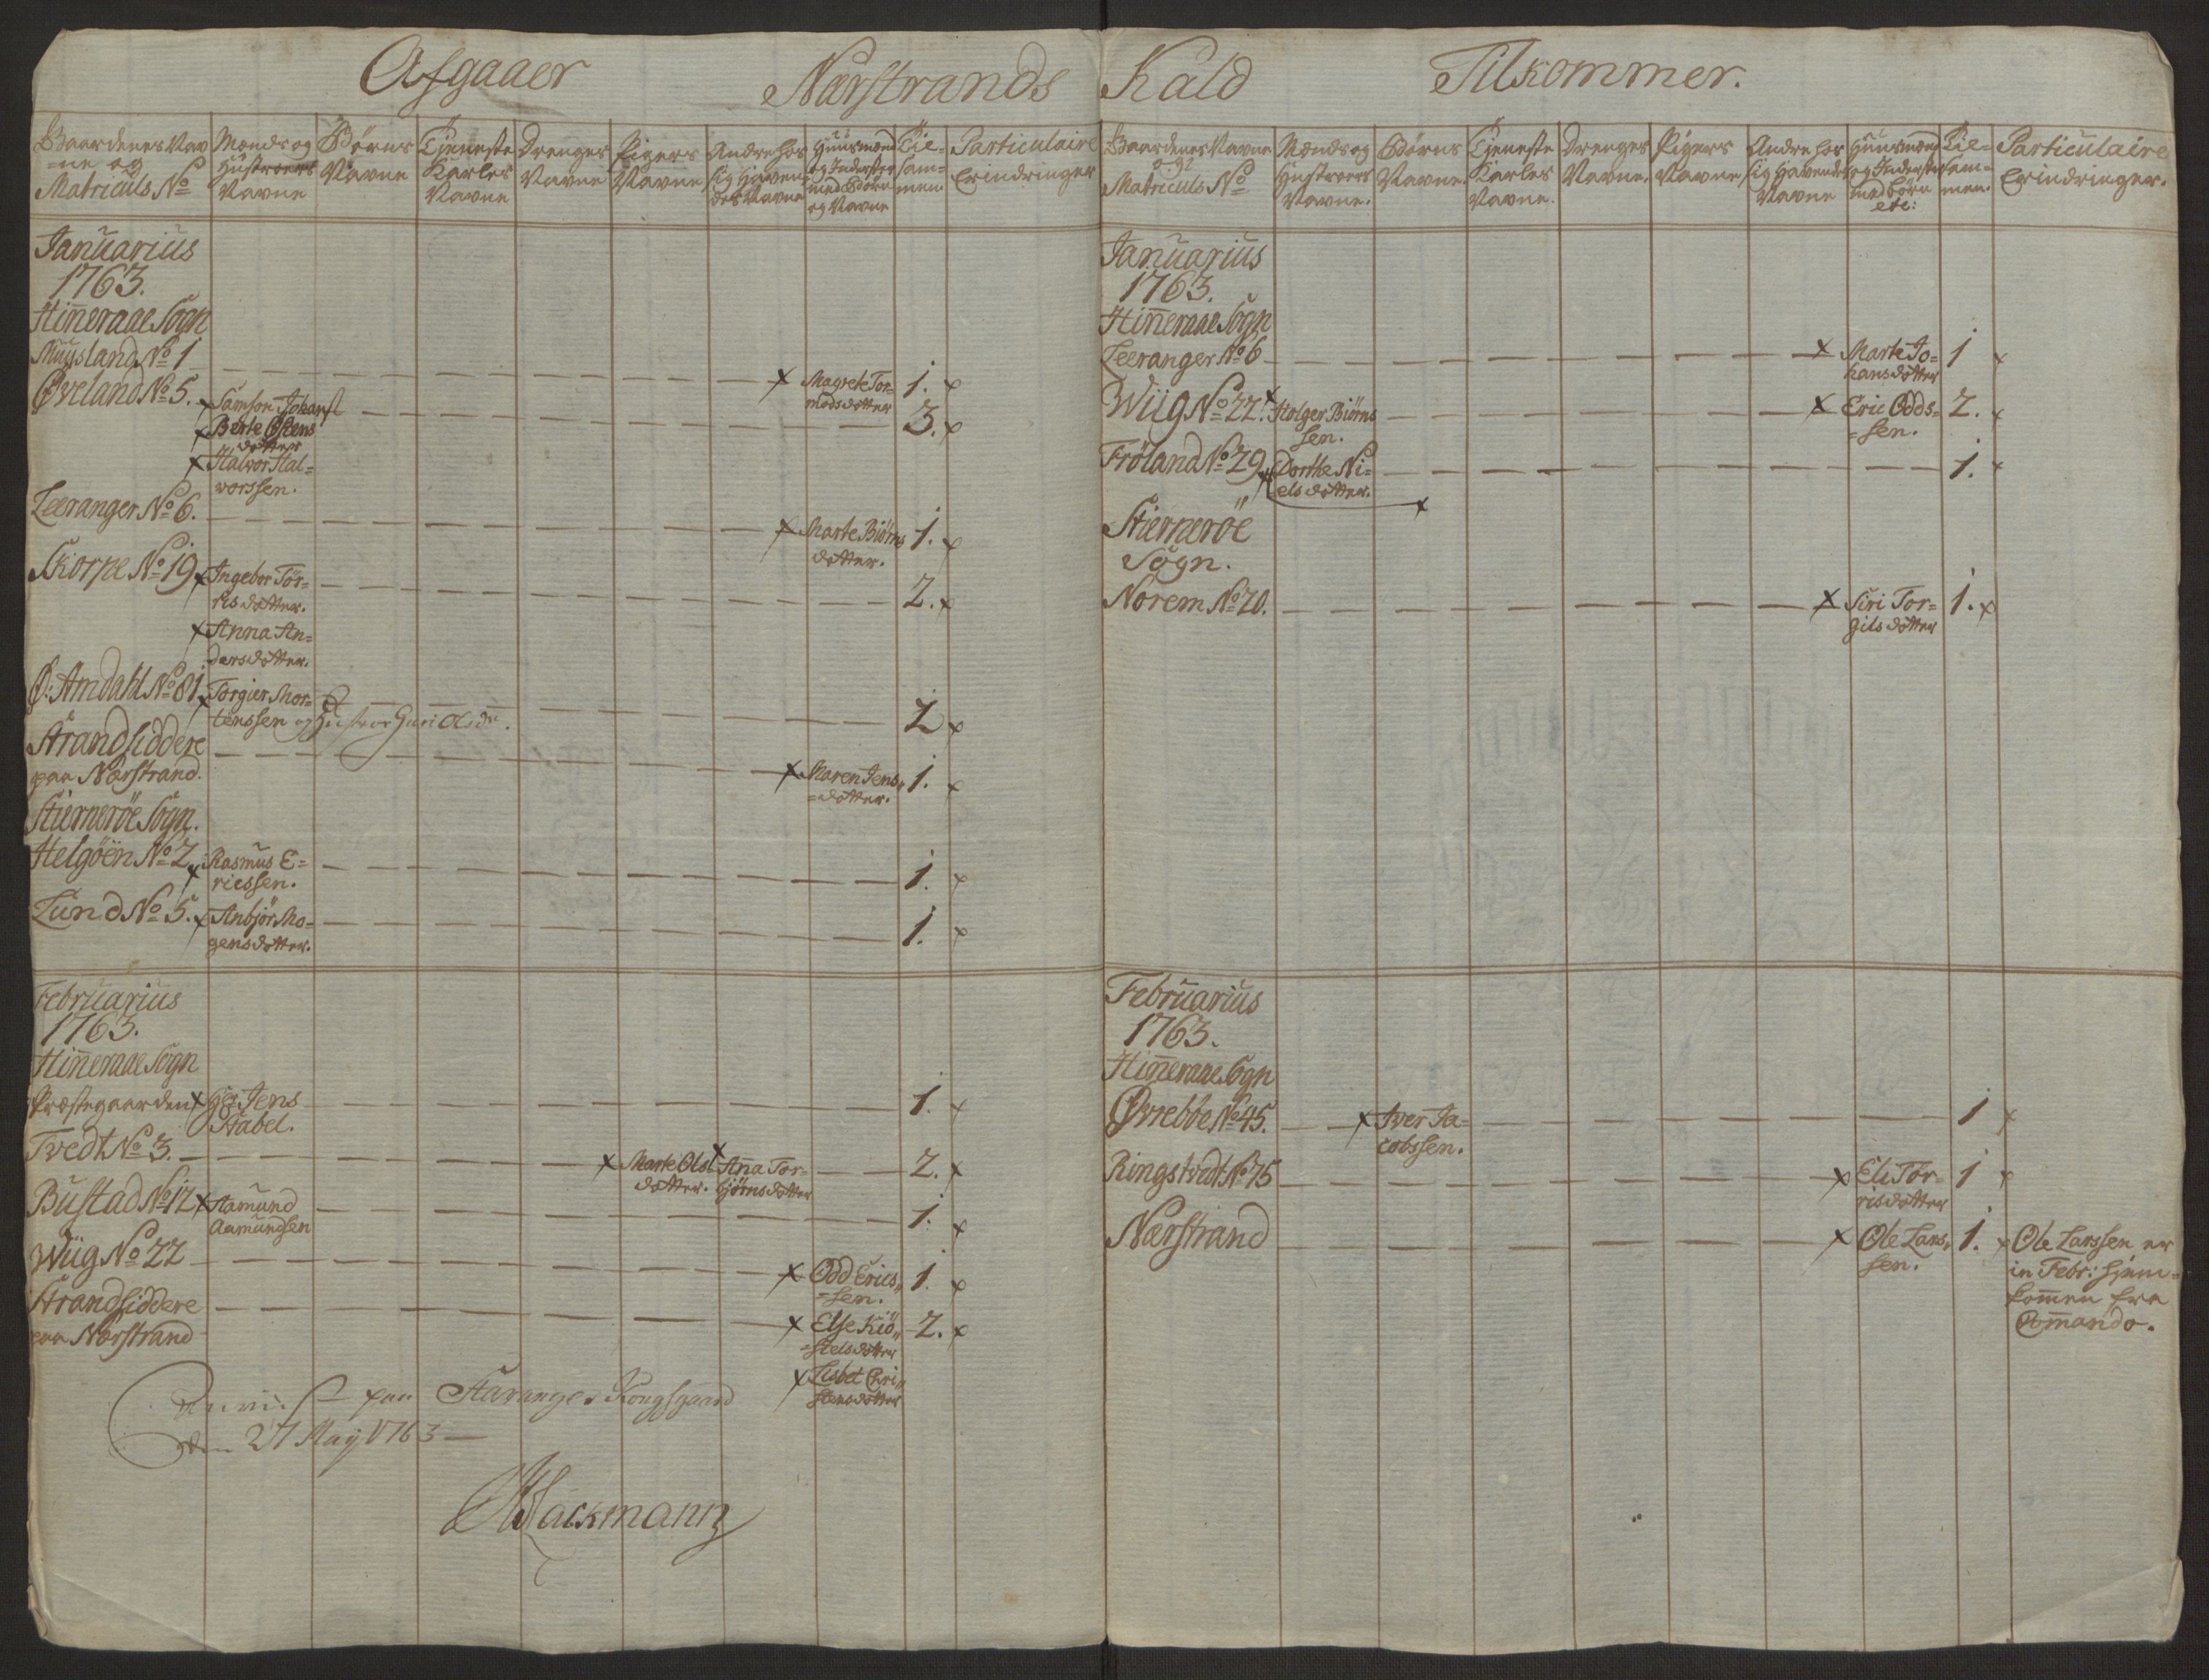 Afgaaer
Nærstrands Kald
Tilkommer.
Gaardenes Nav
=ne og
Matriculs No
Mænds og
Hustroers
Navne
Børns
Navne
Tjeneste
Karles
Navne
Drenges
Navne
Pigers
Navne
Andre hos
sig Hawen=
des Navne
Huusmænd
og Inderster
med Børn
og Navne
Til=
sam=
men
Particulaire
Erindringer
Januarius
1763.
Hiñeraae Sogn
Muusland No 1
Magrete Tor=
modsdotter
1.
Øveland No 5.
Samson Johans
Berte Østens
dotter
Halvor Hal=
vorssen.
3.
Leeranger No 6.
Marte Biørns
dotter.
1.
Skorpe No 19
Ingebor Tør=
risdotter.
Anna An=
dersdotter.
2.
Ø: Amdahl No 81
Torgier Mor=
tenssen og Hustroe Guri Olsdr.
2
Strandsiddere
paa Nærstrand.
Maren Jens
=dotter.
1.
Stiernerøe Sogn.
Helgøen No 2
Rasmus E=
ricssen.
1.
Lund No 5.
Anbjør Mo=
gensdotter.
1.
Februarius
1763.
Hiñeraae Sogn
Præstegaarden
Hr Jens
Stabel.
1.
Tvedt No 3.
Marte Ols
dotter.
Añna Tor=
bjørnsdotter
2.
Bustad No 12
Aamund
Aamundsen
1.
Wiig No 22
Odd Erics
=sen.
1.
Strandsiddere
paa Nærstrand
Else Kiø
=stelsdotter
2.
Lisbet Chri
stensdotter
paa Stavanger Kongsgaard
den 27 May 1763
Hackmann
Gaardenes Navne
og
Matriculs No
Mænds og
Hustroers
Navne.
Børns
Navne.
Tjeneste
Karles
Navne.
Drenges
Navne.
Pigers
Navne
Andre hos
sig Havende
Navne
Huusmænd
og Inderster
med børn
etc:
Til=
sam=
men.
Particulaire
Erindringer.
Januarius
1763.
Hiñeraae Sogn
Leeranger No 6
Marte Jo=
hansdotter
1
Wiig No 22.
Holger Biørns
sen.
Eric Odds=
=sen.
2.
Frøland No 29
Dorthe Ni=
elsdotter.
1.
Stiernerøe
Sogn.
Norem No 20.
Siri Tor=
gilsdotter
1.
Februarius
1763.
Hiñeraae Sogn
Øvrebøe No 45.
Iver Ja=
cobssen.
1
Ringstvedt No 75
Eli Tør=
risdotter
1
Nærstrand
Ole Lars
sen.
1.
Ole Larssen er
in Febr: hjem=
kommen fra
Commando.